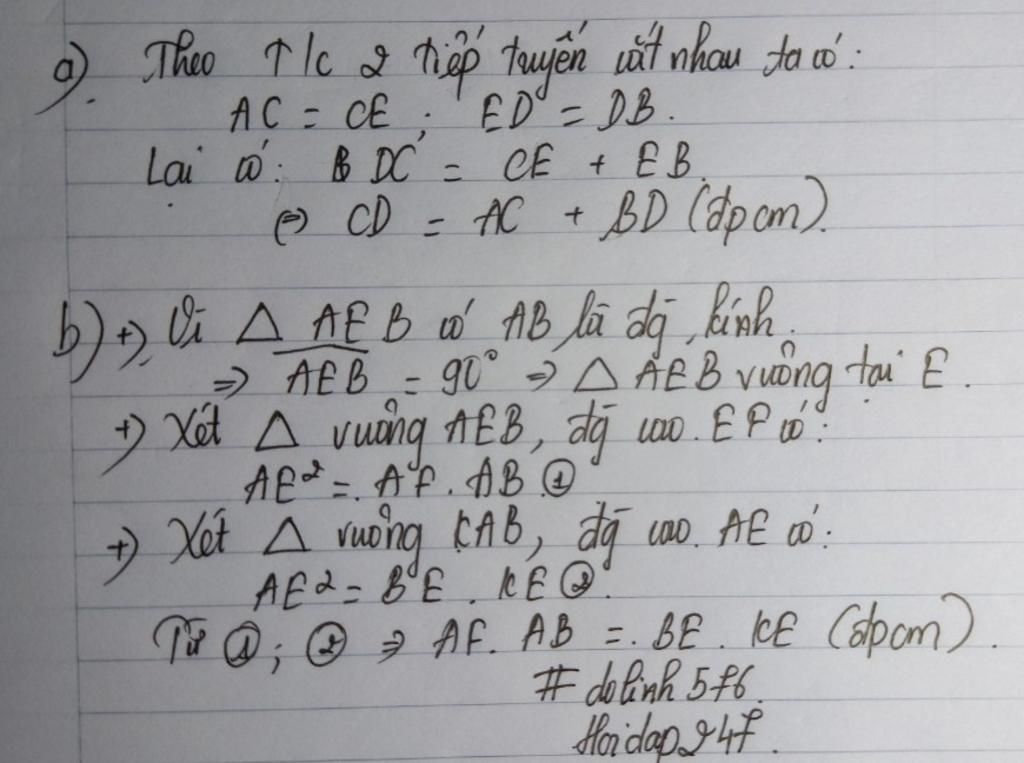 a) Theo t/c 2 tiếp tuyến cắt nhau ta có:
AC = CE ; ED = DB.
Lại có: DC = CE + EB.
⇔ CD = AC + BD (đpcm).
b) +) Vì △ AEB có AB là đg kính.
⇒ AEB = 90° ⇒ △ AEB vuông tại E.
+) Xét △ vuông AEB, đg cao EF có:
AE² = AF . AB ①
+) Xét △ vuông KAB, đg cao AE có:
AE² = BE . KE ②
Từ ① ; ② ⇒ AF. AB = BE . KE (đpcm).
# dolinh 5f6.
Hoidap24f.